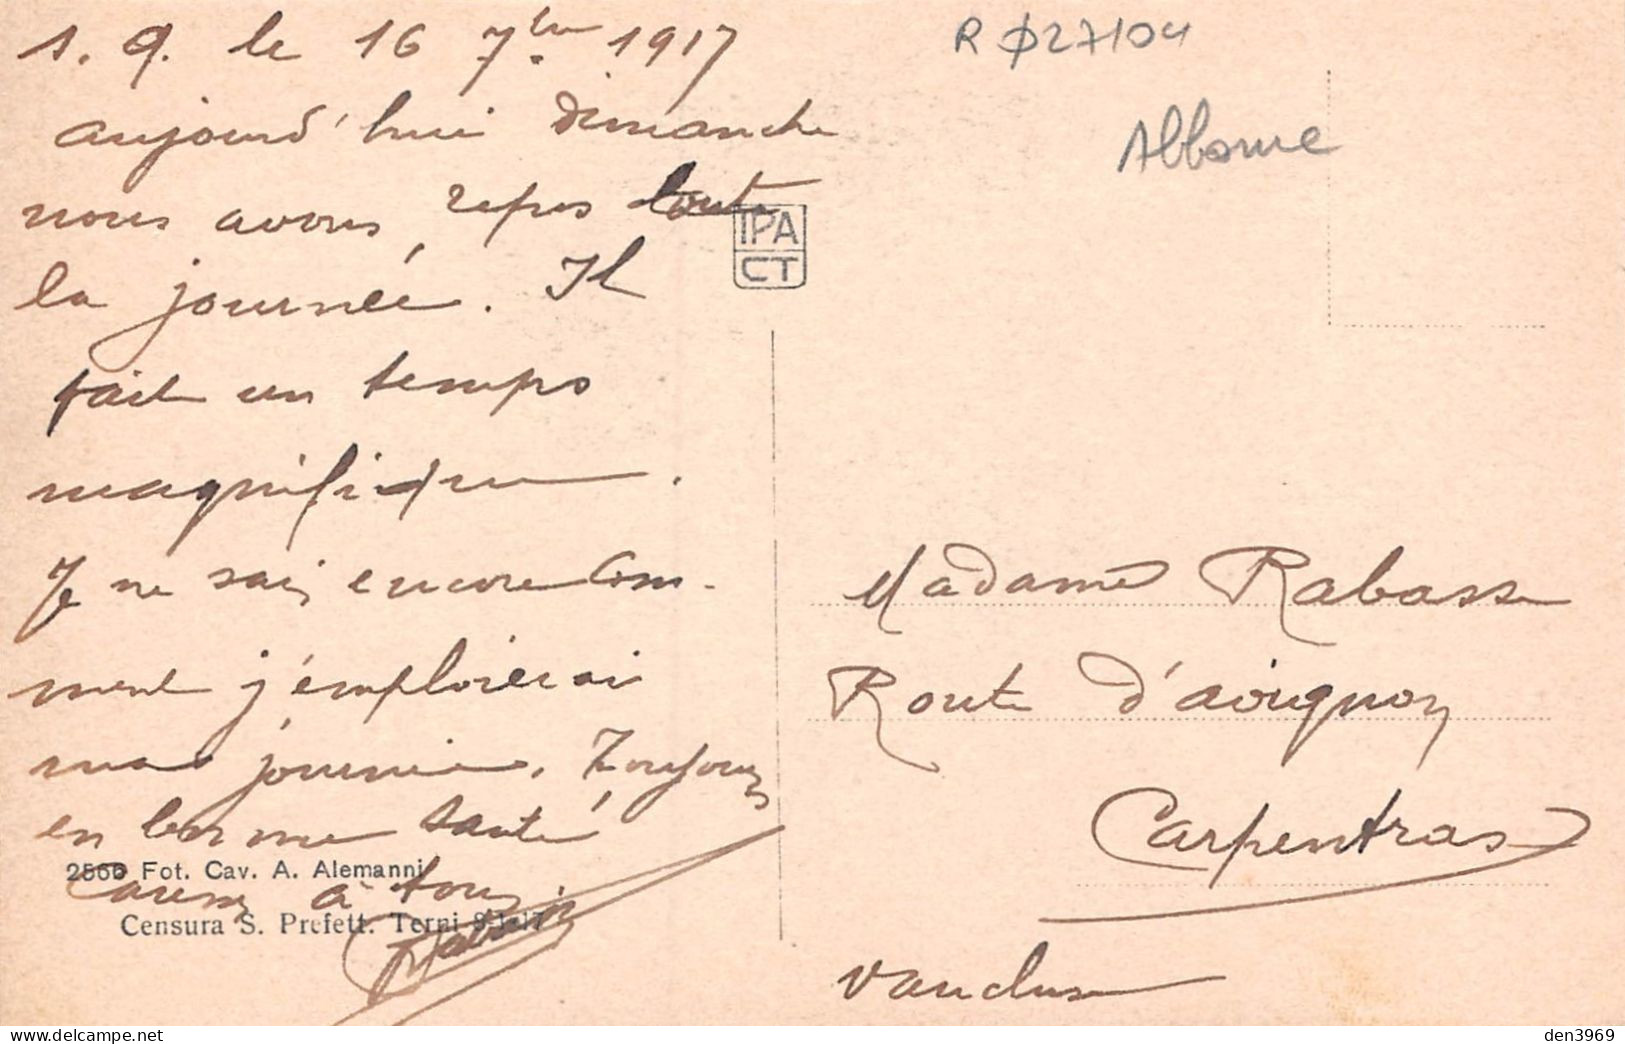 1. 9. le 16 7bre 1917
aujourd'hui dimanche
nous avons repos toute
la journée. Il
fait un temps
magnifique.
Je ne sais encore com-
ment j'emploierai
ma journée. Toujours
en bonne santé
Caresses à tous
2566 Fot. Cav. A. Alemanni
Censura S. Prefett. Terni 8-1-17
R Ø27104
IPA
CT
Madame Rabasse
Route d'avignon
Carpentras
Vaucluse
den3969